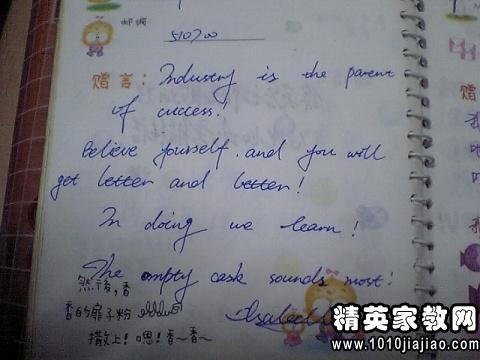 邮编
510700
赠言: Industry is the parent
of success!
Believe yourself. and you will
get better and better!
In doing we learn!
The empty cask sounds most!
然後,香
香的扉子粉
撒上! 嗯! 香~香~
精英家教网
www.1010jiajiao.com